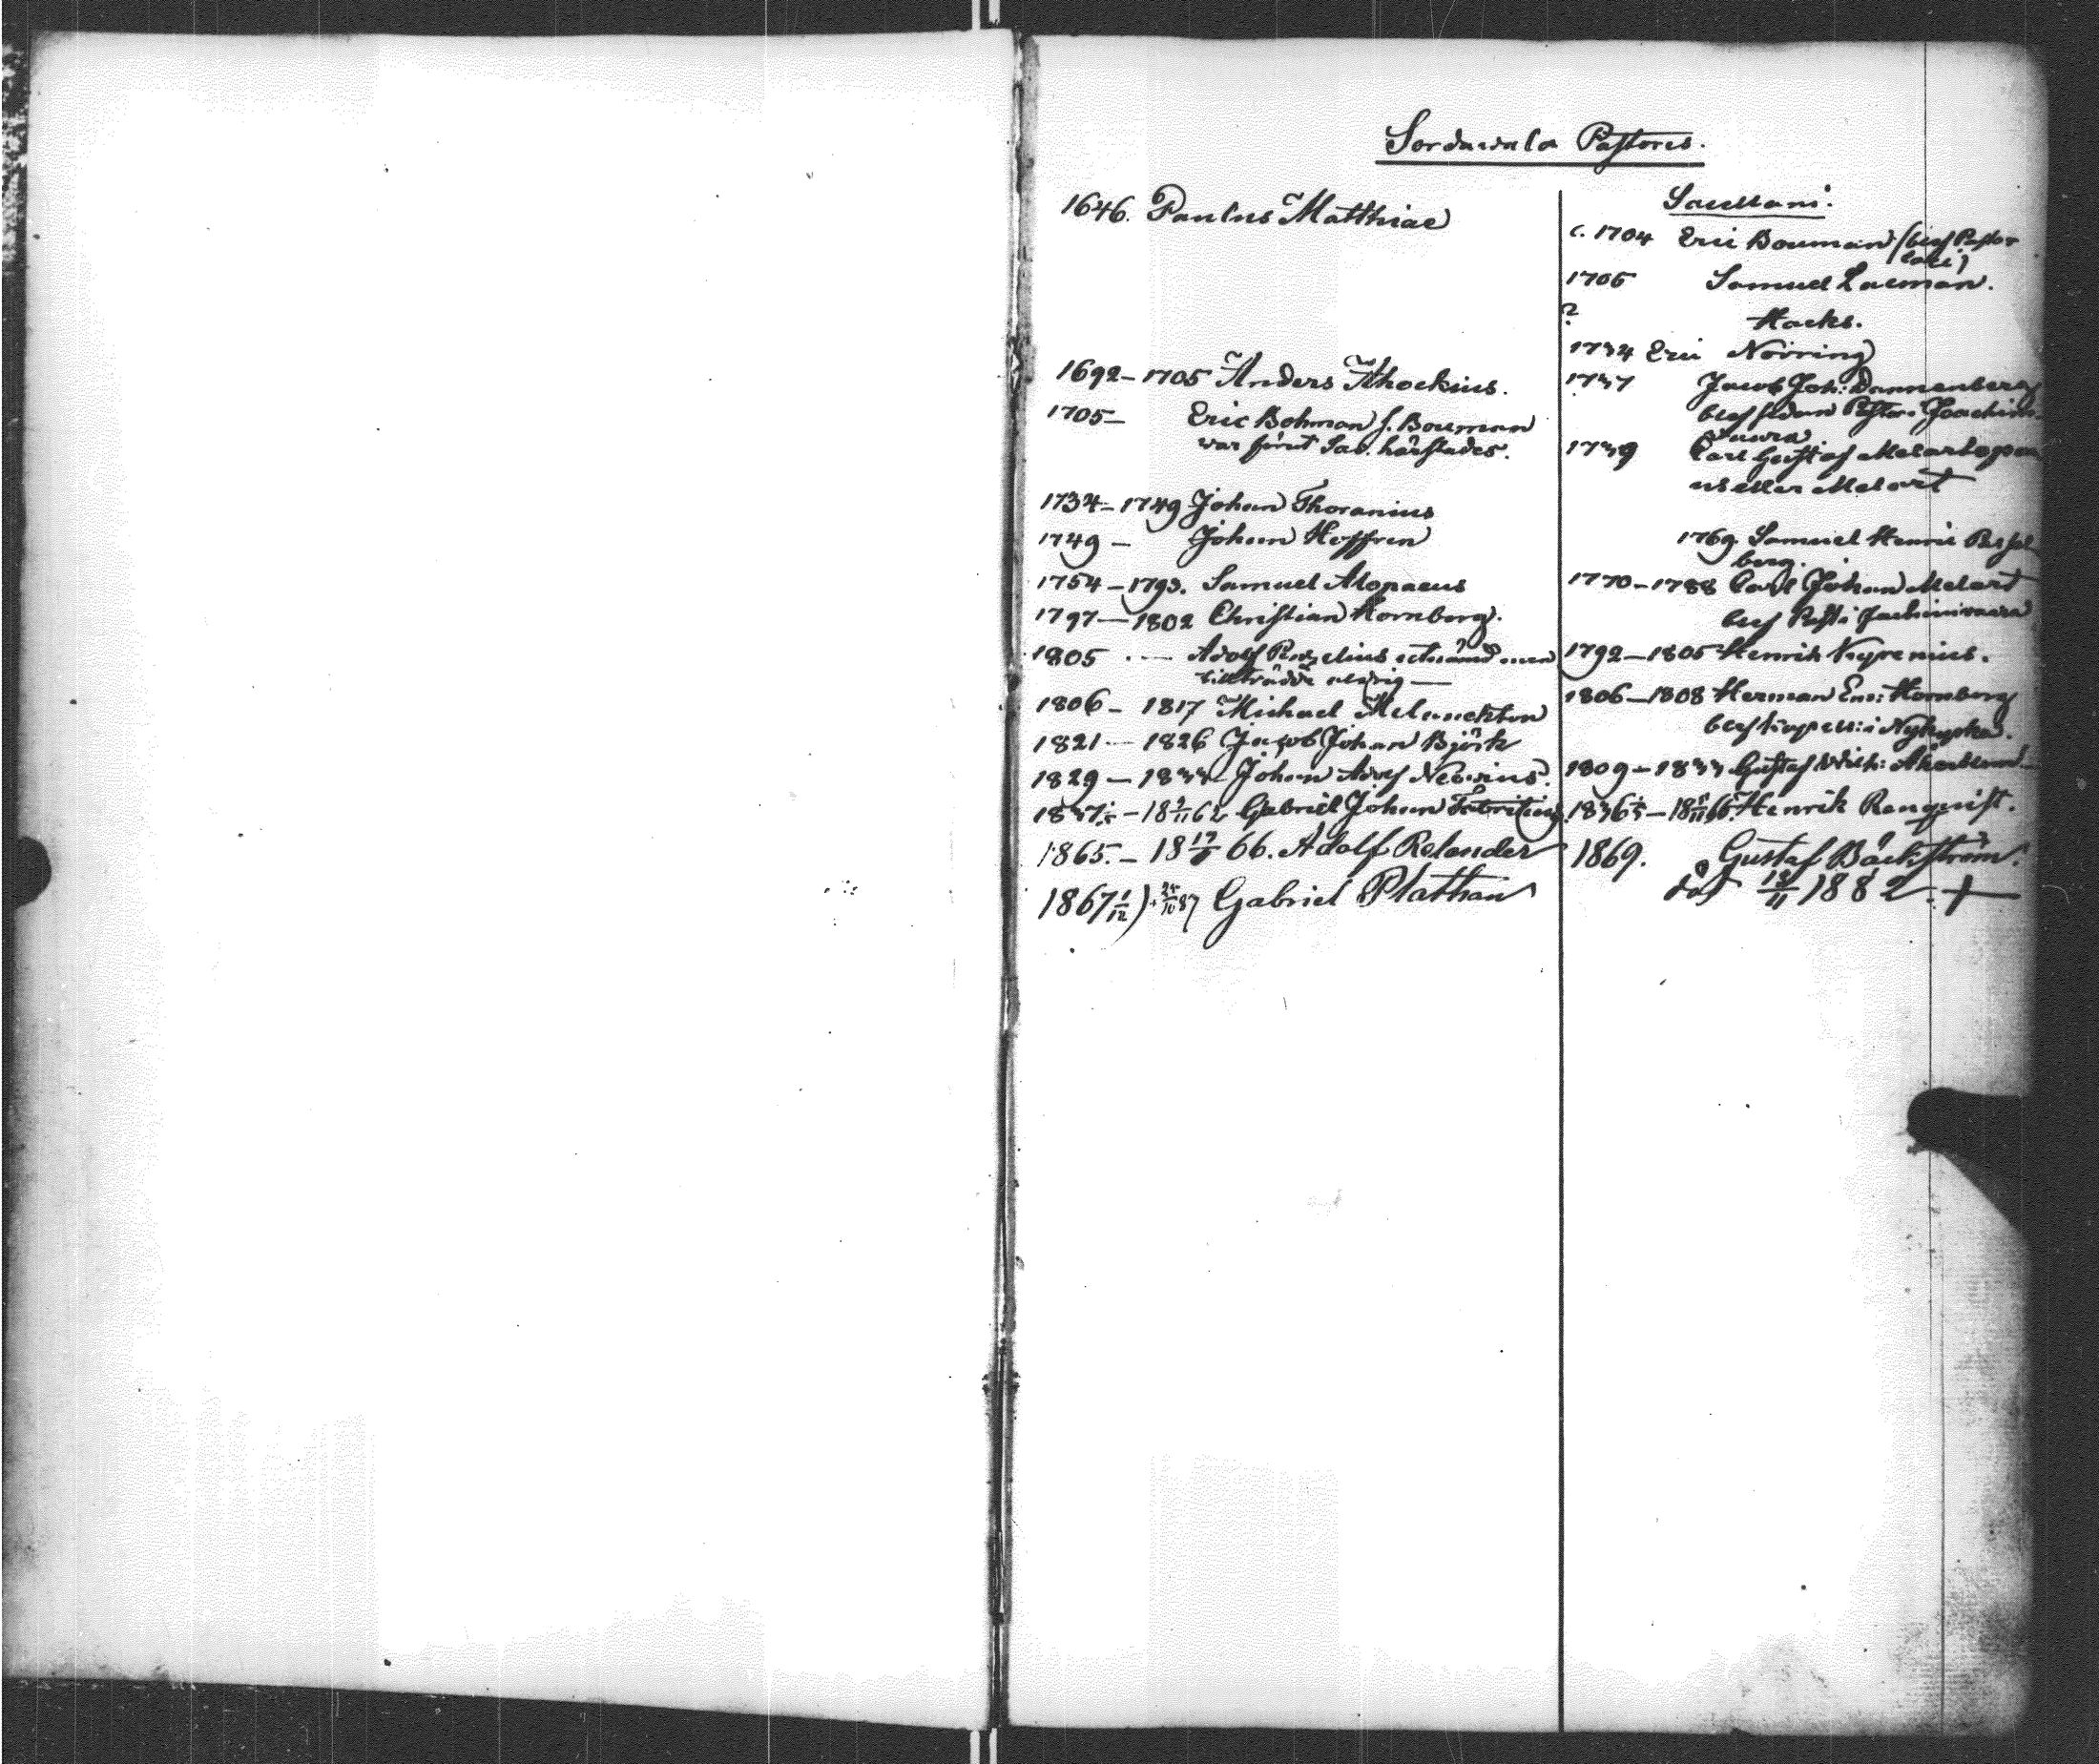 Sordavala Pastores.
1646. Paulus Matthiae
1692–1705 Anders Ahockius.
1705– Eric Bohman l. Bouman
var förut Sac. härstädes.
1734–1749 Johan Thoranius
1749 – Johan Hoffren
1754–1793. Samuel Alopaeus
1797–1802 Christian Hornborg.
1805 — Adolf utnämd men
tillträdde aldrig —
1806 – 1817 Michael Melanckton
1821 – 1826 Jacob Johan Björk
1829 – 1834 Johan Adolf Neovius.
1837 – 18 62 Gabriel Johan Fabritius.
1865. – 18 17/5 66. Adolf Relander
1867 1/12) . 24/10 87 Gabriel Plathan
Sacellani.
c. 1704 Eric Bouman (blef Pastor
loci)
1705 Samuel Lacman.
? Hacks.
1734 Eric Norring
1737 Jacob Joh: Dannenberg
blef sedan Pastor i Joachim
vaara.
1739 Carl Gustaf Melartopae
us eller Melart
1769. Samuel Henric
berg.
1770–1788 Carl Johan Melart
blef Past. i Jackimvaara
1792–1805 Henrik Kyrenius.
1806–1808 Herman Em: Hornborg
blef Kapell: i Nykyrka.
1809–1833 Gustaf Wilh: Åkerlund
1836 – 18 66. Henrik Renqvist.
1869. Gustaf Bäckström.
död 18/11 1882. +